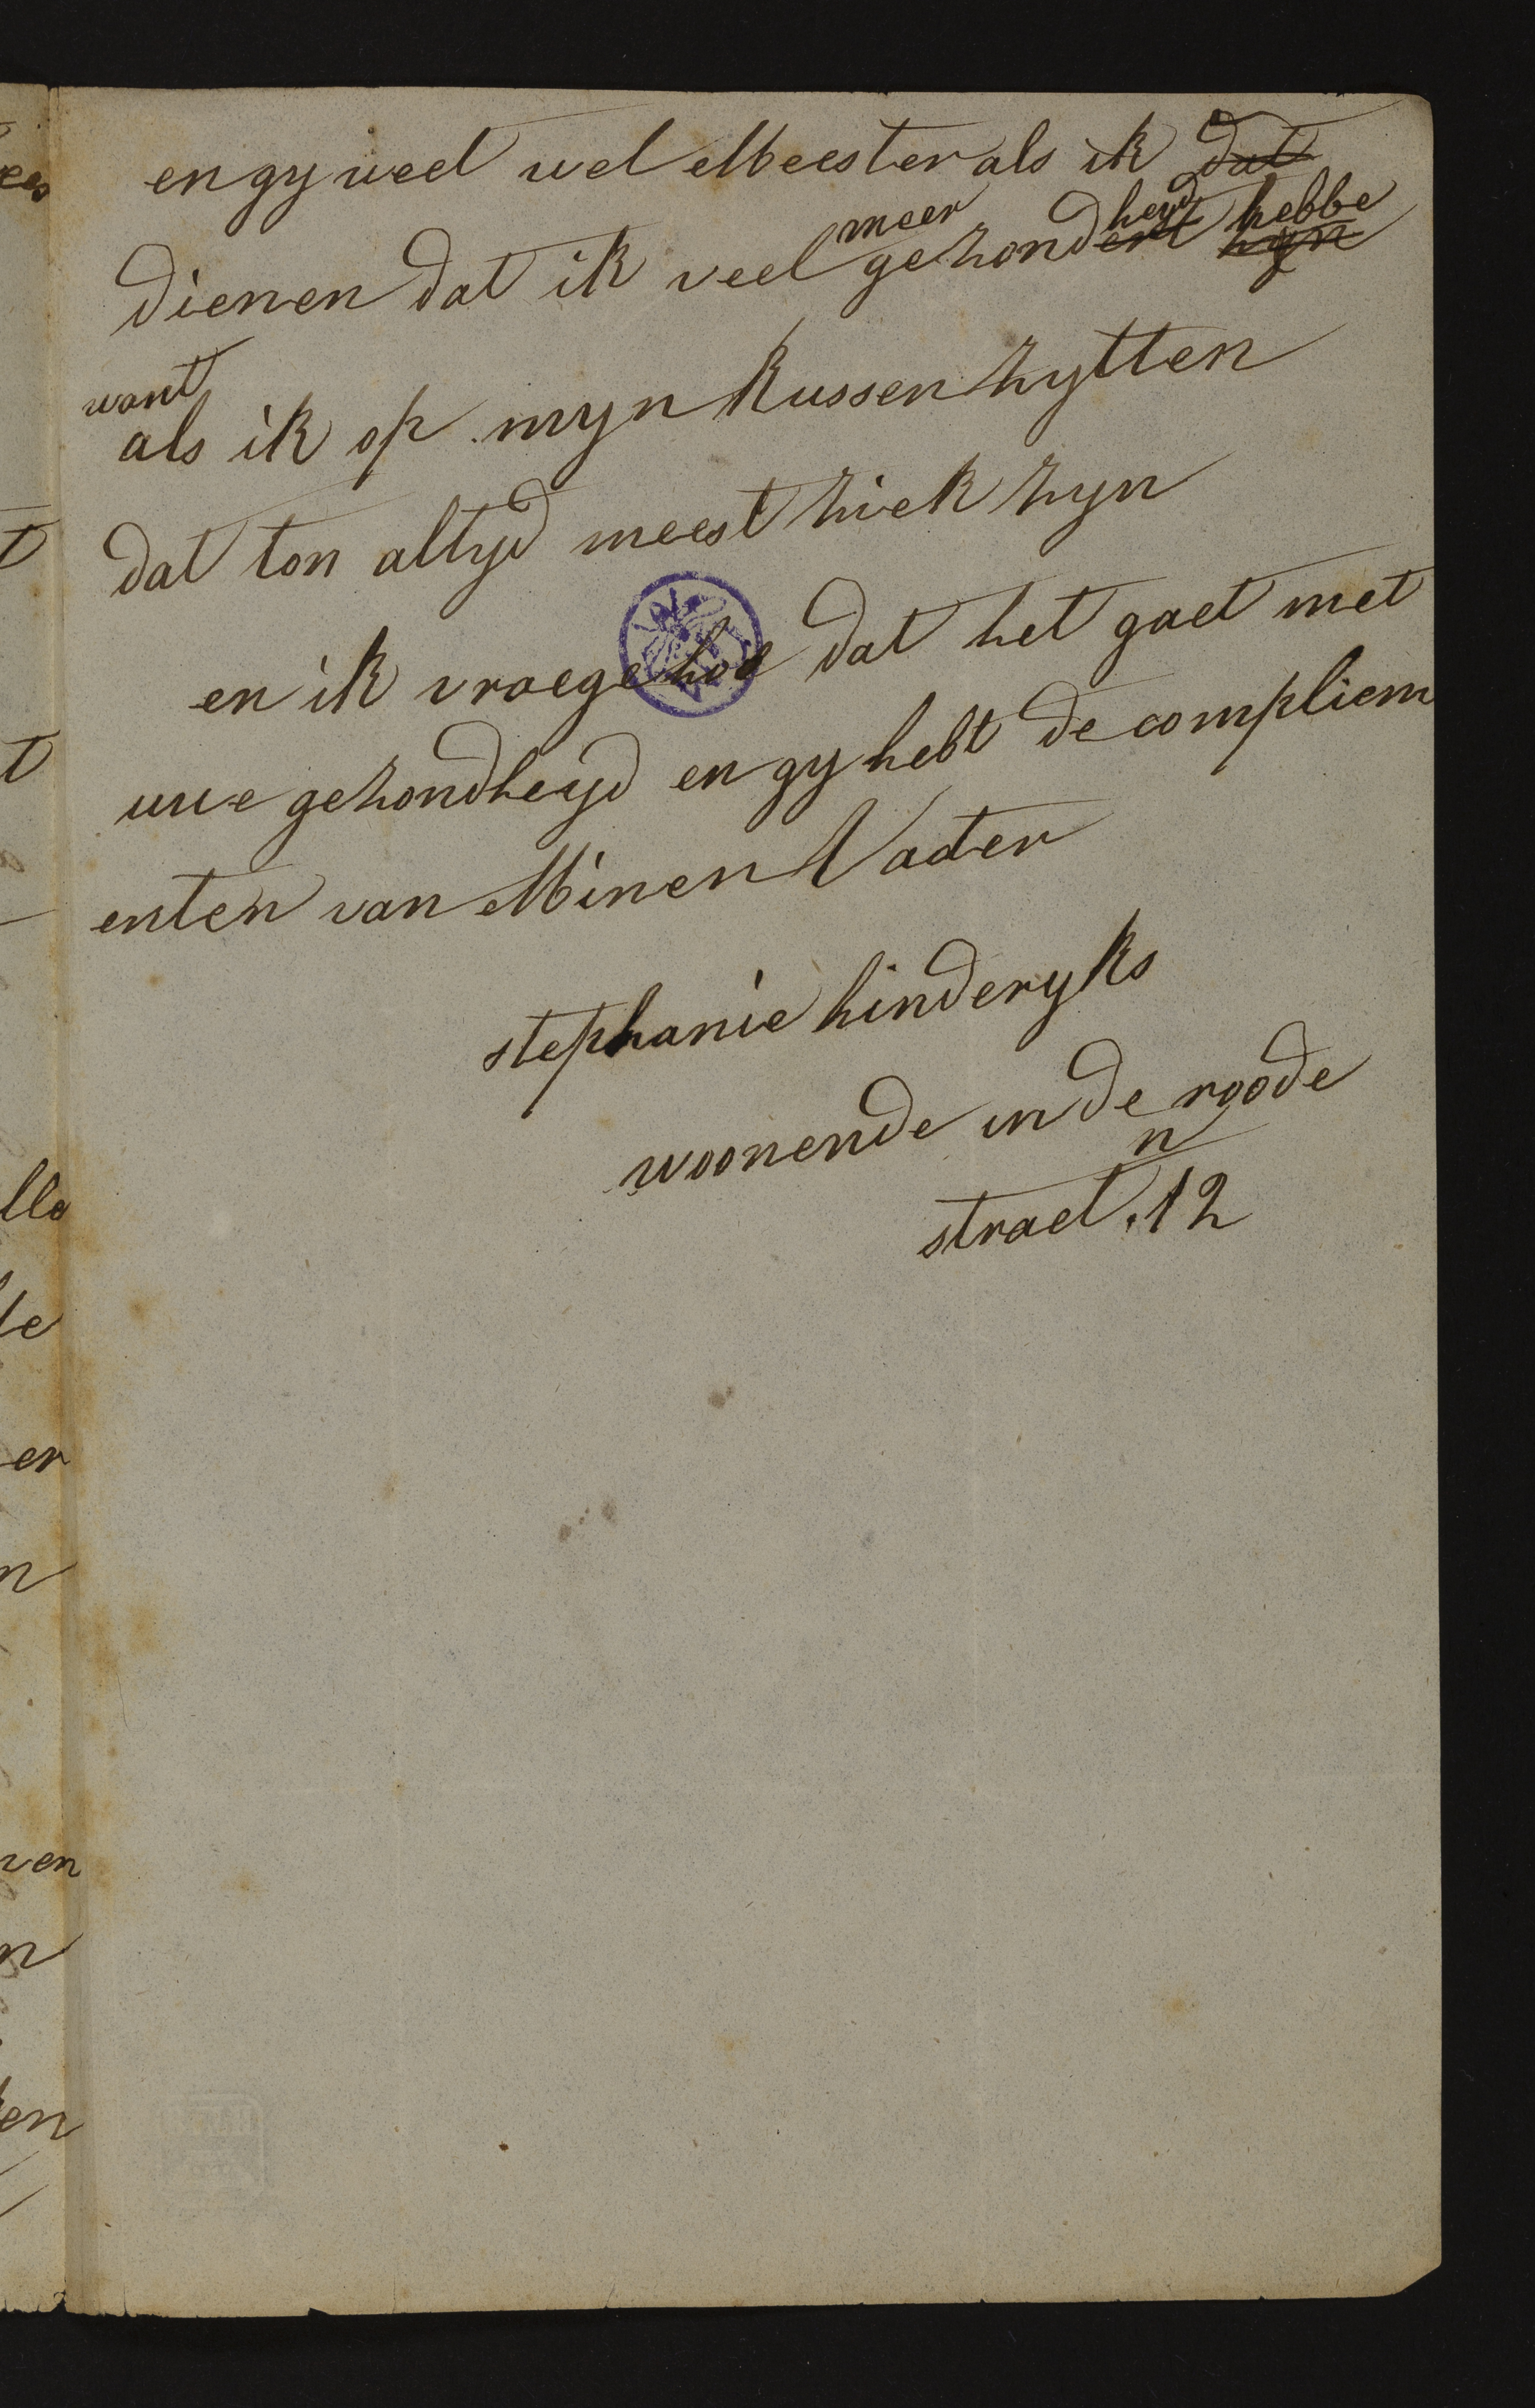 en gy weel wel Meester als ik dat
dienen dat ik veel meer gezondheyd ert hebbe zyn
want
als ik op myn kussen zytten
dat ton altyd meest ziek zyn
en ik vraege hoe dat het gaet met
uwe gezondheyd en gy hebt de compliem
enten van Minen Vader
stephanie hinderyks
woonende in de roode
n
straet .12
lla
er
ven
en